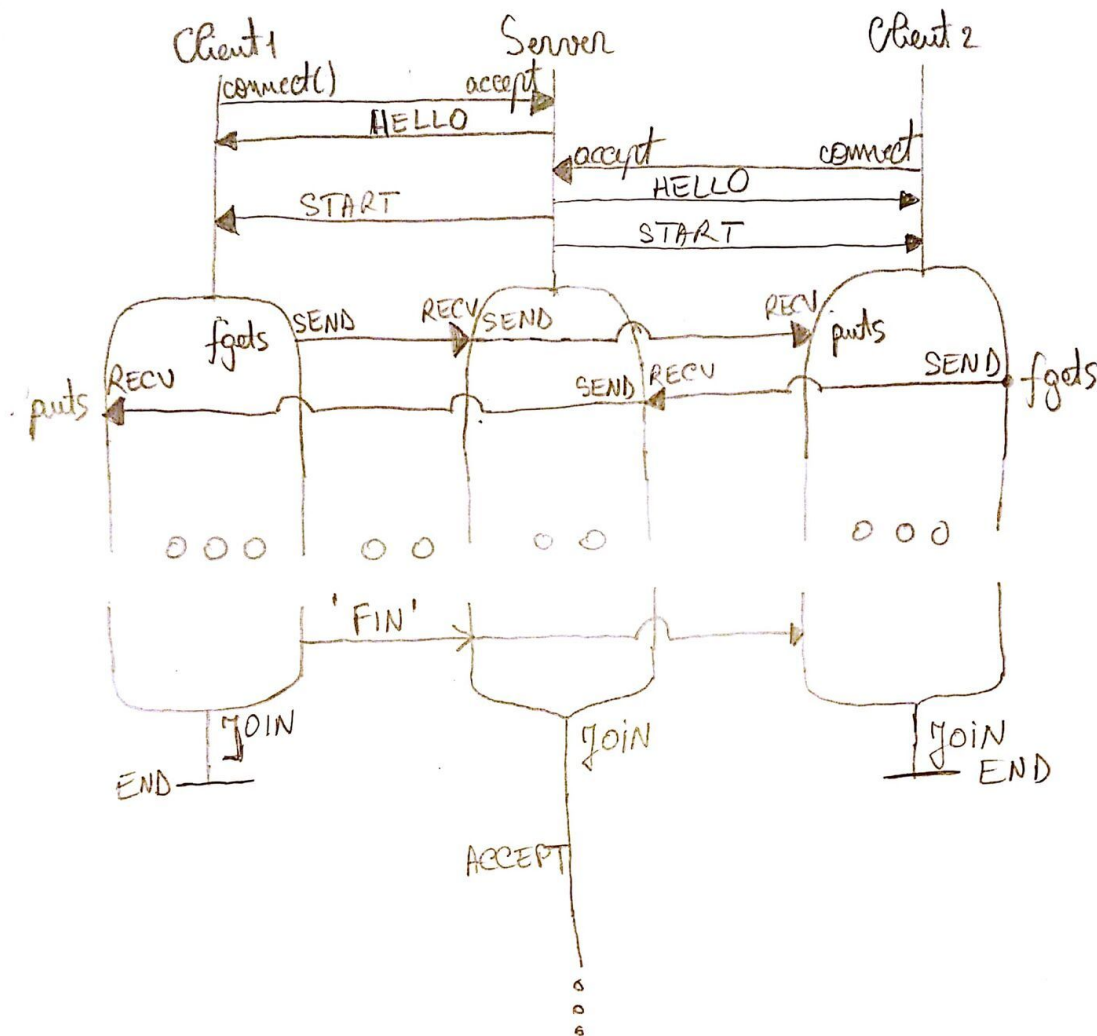 Client 1 Server Client 2
connect() accept
HELLO
accept connect
HELLO
START
START
fgets SEND RECV SEND RECV puts
puts RECV SEND RECV SEND fgets
'FIN'
JOIN JOIN JOIN
END END
ACCEPT